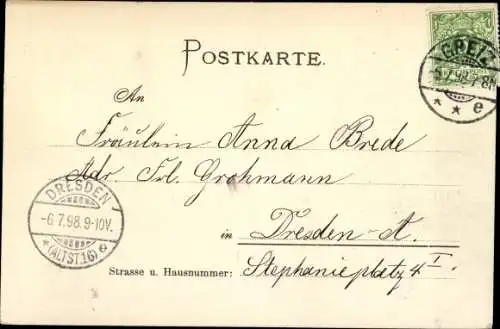 POSTKARTE.
GREIZ
5.7.98.7-8N
* * e
An
Fräulein Anna Brede
Adr. Frl. Grohmann
DRESDEN
-6.7.98.9-10V.
*(ALTST.16) e
in Dresden-A.
Strasse u. Hausnummer: Stephanieplatz 4 I